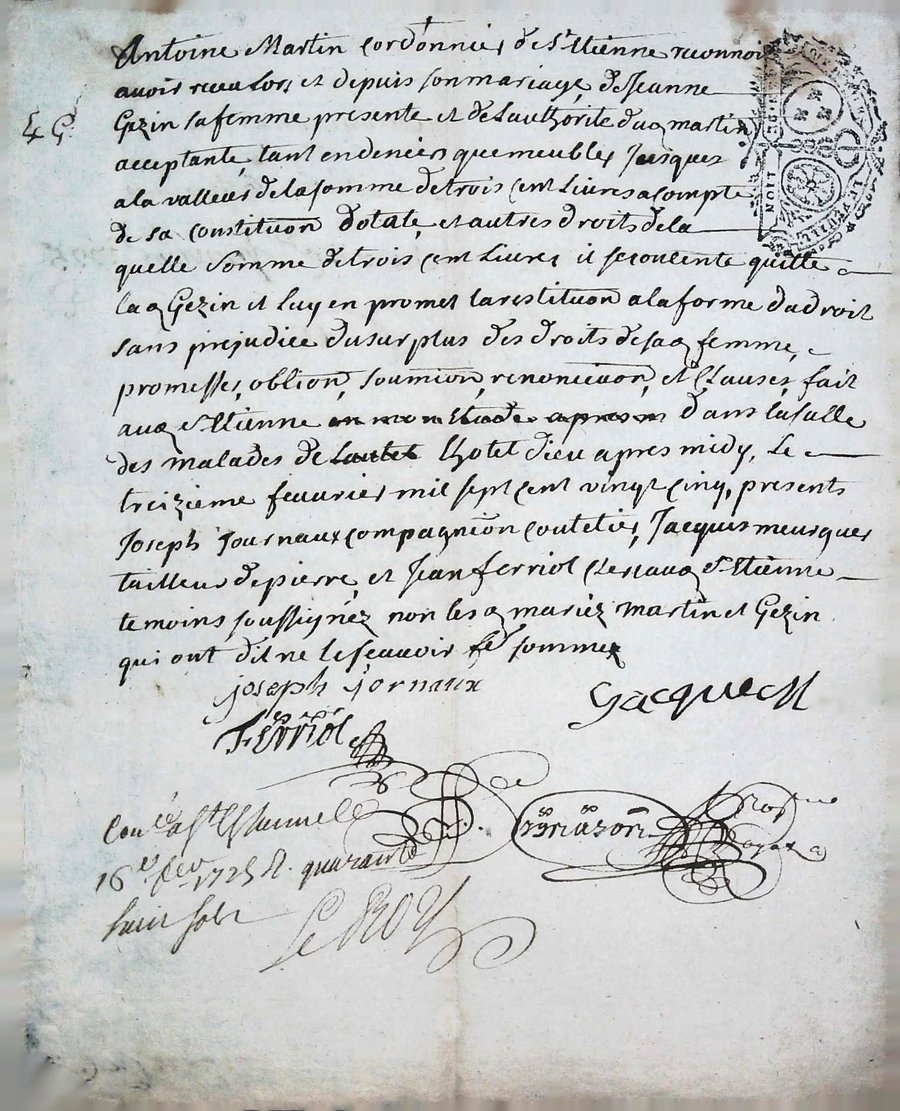 Antoine Martin Cordonnier de St Etienne reconnoit
avoir receu lors et depuis son mariage de Jeanne
Gezin sa femme presente et de Lauthorite dud martin
acceptante, tant en deniers que meubles jusques
a la valleur de la somme de trois cent Livres a compte
de sa constitution dotale, et autres droits de la
quelle somme de trois cent Livres il se contente quitte
lad Gezin et Luy en promet la restitution a la forme du droit
sans prejudice du surplus des droits de sad femme,
promesses, oblion, soumion, renonciation, et clauses, fait
aud St Etienne dans la salle
des malades de Lhotel Dieu apres midy, Le
treizieme fevvrier mil sept cent vingt cinq, presents
Joseph Journaux compagnion coutelier, Jacques meurgues
tailleur de pierre, et Jean ferriol clerc aud St Etienne
temoins soussignéz non lesd mariéz Martin et Gezin
qui ont dit ne le scavoir de ce sommez
joseph jornaux
Jacque M
Ferriol
Conlé a St Estienne le
16e fevr 1725 R. quarante
huit sols
Le Roy
LION
LA FEUILLE